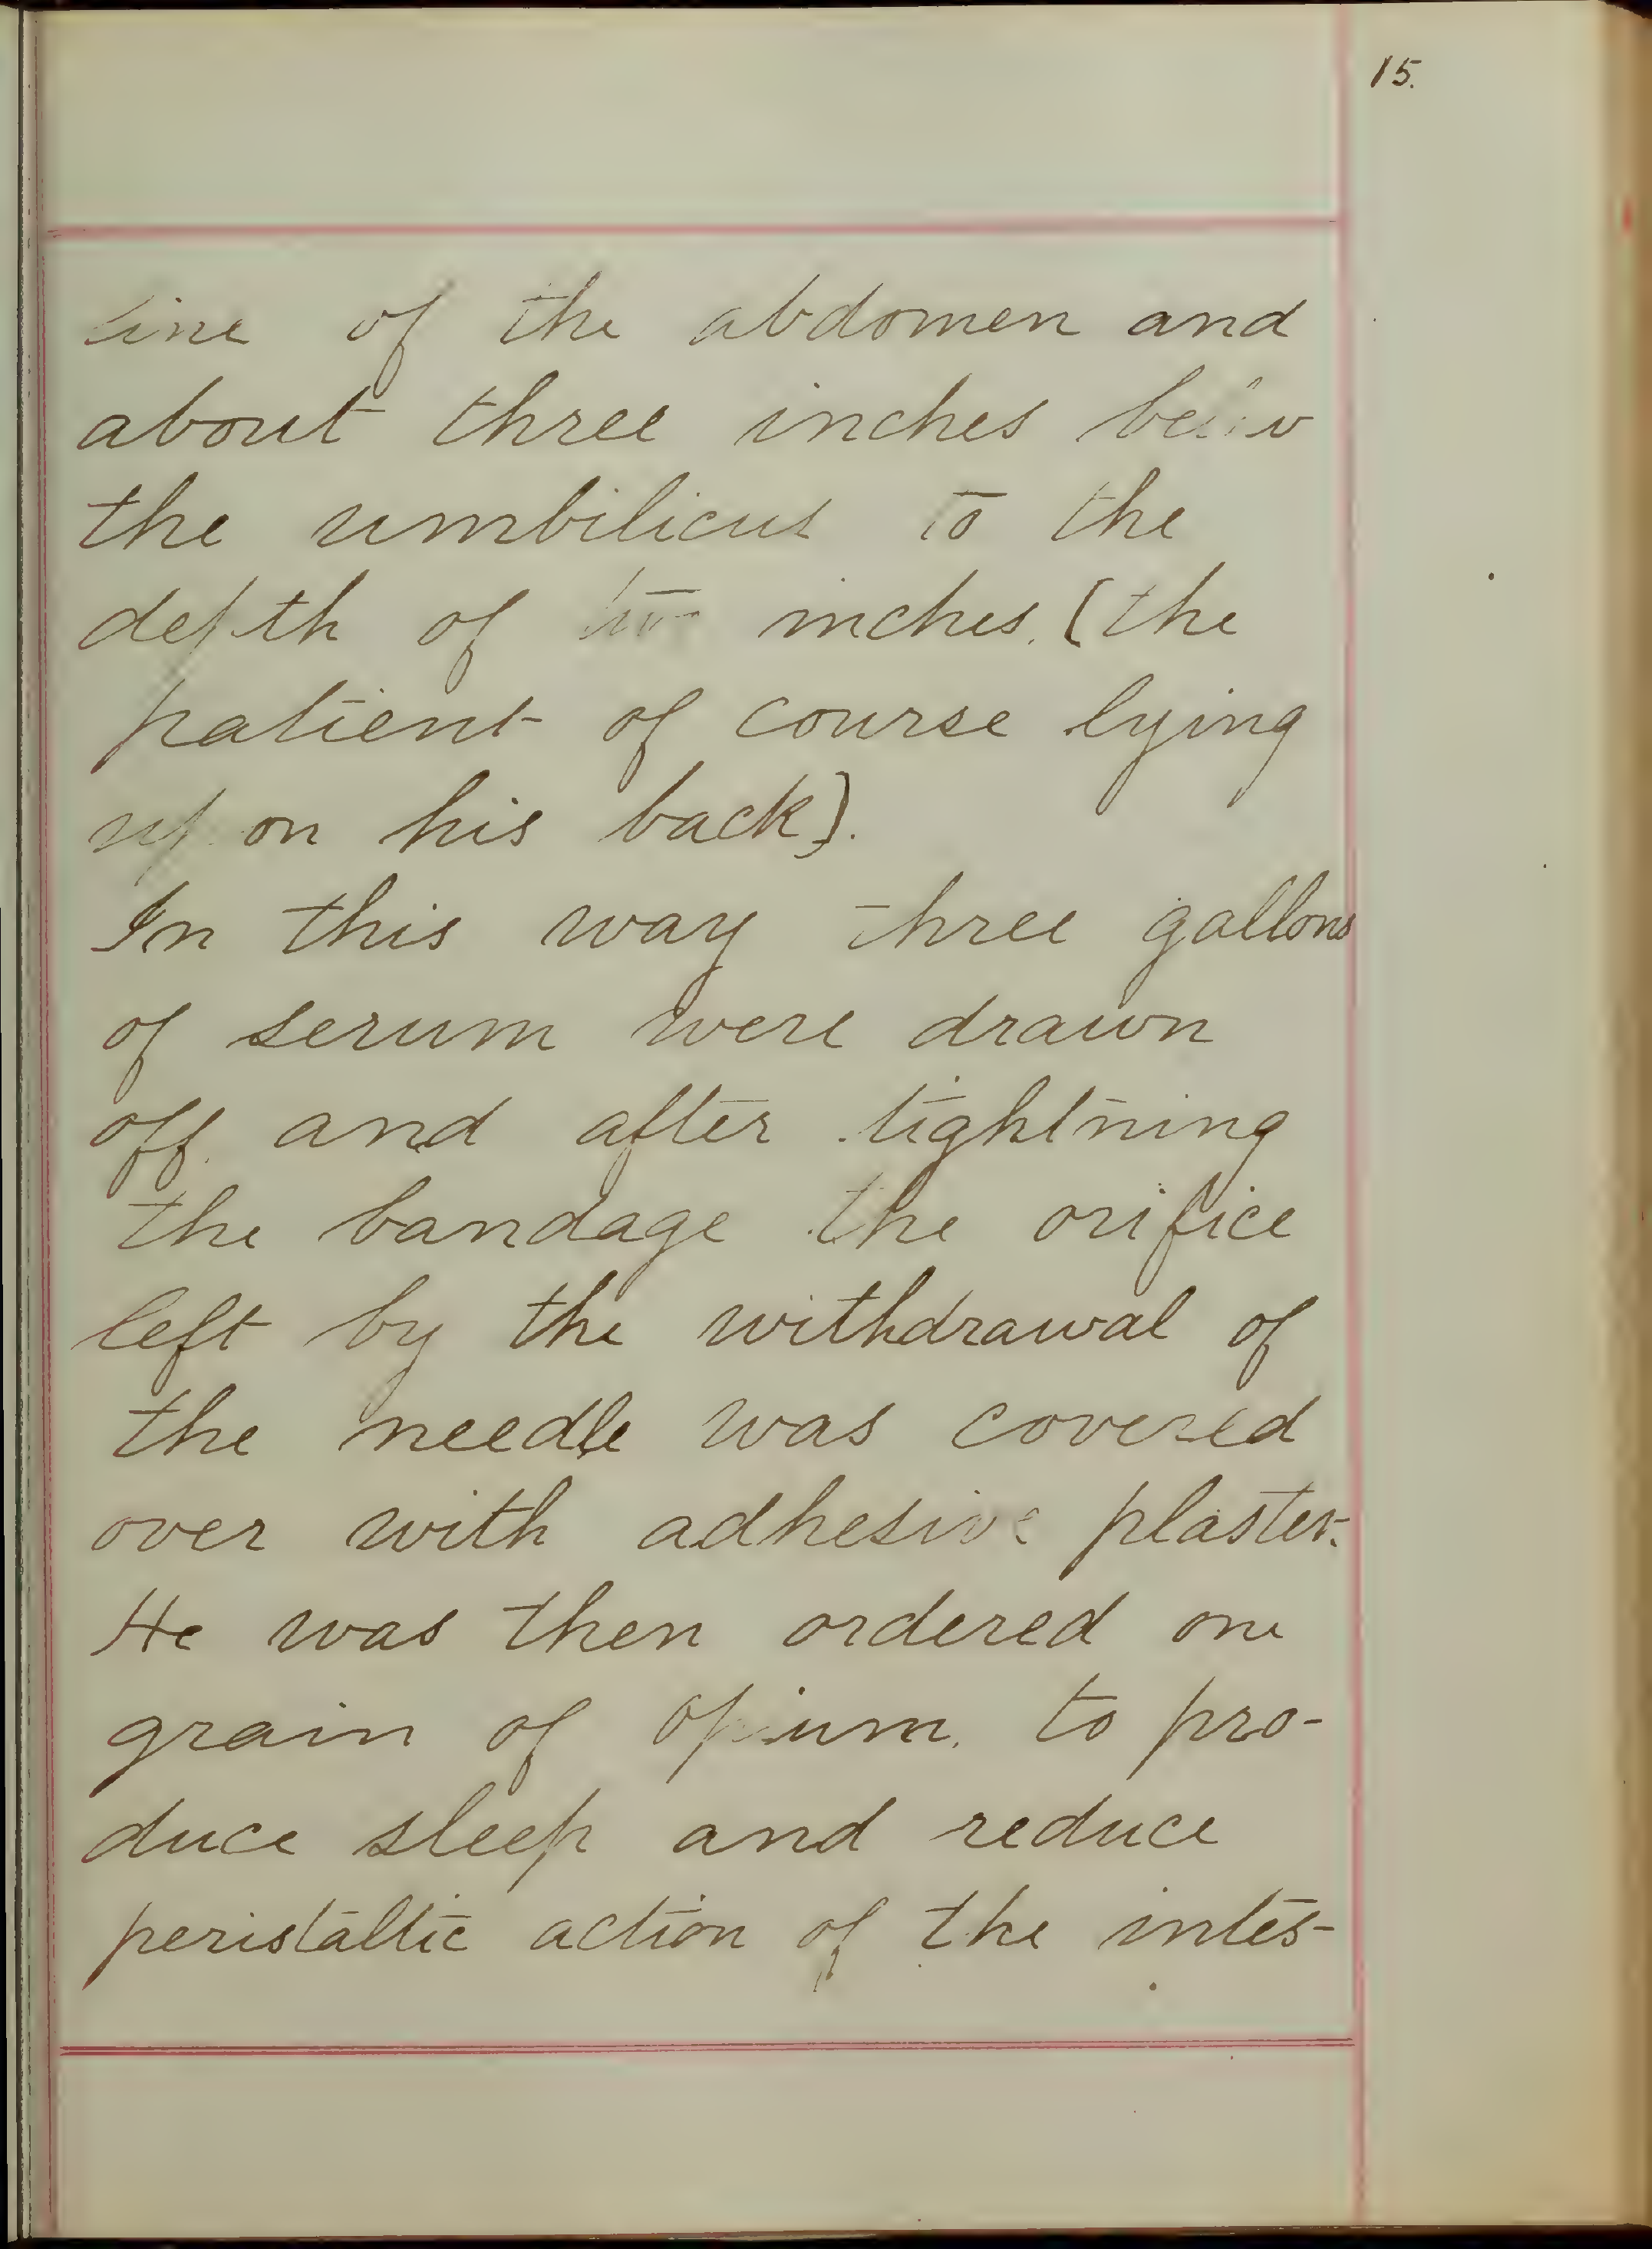 15.
line of the abdomen and
about three inches below
the umbilicus to the
depth of two inches. (the
patient of course lying
upon his back).
In this way three gallons
of serum were drawn
off. and after tightning
the bandage the orifice
left by the withdrawal of
the needle was covered
over with adhesive plaster.
He was then ordered one
grain of opium. to pro-
duce sleep and reduce
peristaltic action of the intes-